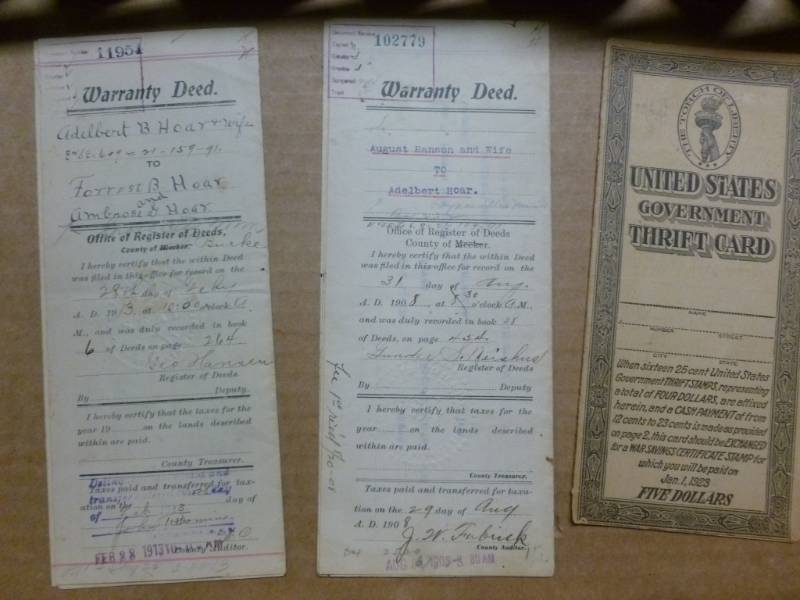 11954
Warranty Deed.
Adelbert B Hoar & Wife
TO
Forrest B Hoar
and
Ambrose Hoar
Office of Register of Deeds.
County of Meeker. Burke
I hereby certify that the within Deed
was filed in this office for record on the
28th day of Feby
A. D. 1913, at 10:00 o'clock A
M., and was duly recorded in book
6 of Deeds on page 264
Geo Hansen
Register of Deeds.
By Deputy.
I hereby certify that the taxes for the
year 19 on the lands described
within are paid.
County Treasurer.
Taxes paid and transferred for taxa-
tion on the day of
FEB 28 1913
County Auditor.
102779
Warranty Deed.
August Hanson and Wife
TO
Adelbert Hoar.
Office of Register of Deeds
County of Meeker.
I hereby certify that the within Deed
was filed in this office for record on the
31 day of Aug.
A. D. 1908, at 8 30 o'clock A M.
and was duly recorded in book 28
of Deeds, on page
Register of Deeds.
By Deputy
I hereby certify that the taxes for the
year on the lands described
within are paid.
County Treasurer.
Taxes paid and transferred for taxa-
tion on the 29 day of Aug
A. D. 1908
County Auditor.
THE TORCH OF LIBERTY
UNITED STATES
GOVERNMENT
THRIFT CARD
NAME
NUMBER STREET
CITY STATE
When sixteen 25 cent United States
Government THRIFT STAMPS, representing
a total of FOUR DOLLARS, are affixed
herein, and a CASH PAYMENT of from
12 cents to 23 cents is made as provided
on page 2, this card should be EXCHANGED
for a WAR SAVINGS CERTIFICATE STAMP for
which you will be paid on
Jan. 1, 1923
FIVE DOLLARS